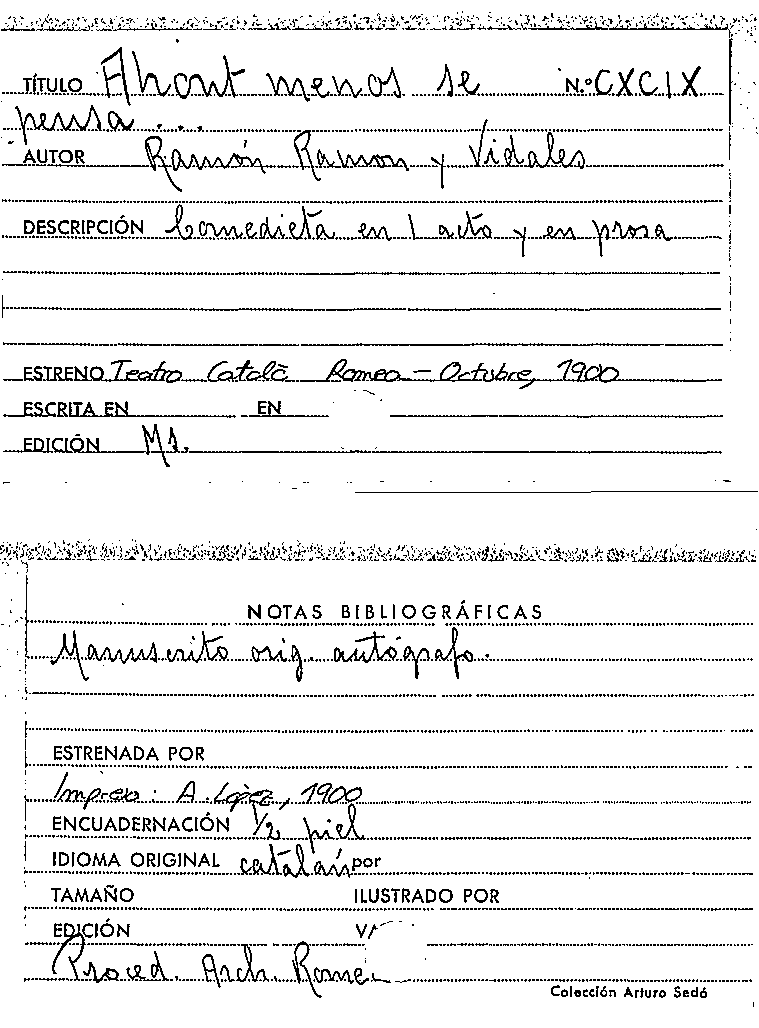 TÍTULO Ahont menos se N.º CXCIX
pensa ...
AUTOR Ramón Ramon y Vidales
DESCRIPCIÓN Comedieta en 1 acto y en prosa
ESTRENO Teatro Català Romea - Octubre, 1900
ESCRITA EN EN
EDICIÓN Ms.
NOTAS BIBLIOGRÁFICAS
Manuscrito orig. autógrafo.
ESTRENADA POR
Impreso: A. López, 1900
ENCUADERNACIÓN 1/2 piel
IDIOMA ORIGINAL catalán por
TAMAÑO ILUSTRADO POR
EDICIÓN
Proced. Arch. Rome
Colección Arturo Sedó